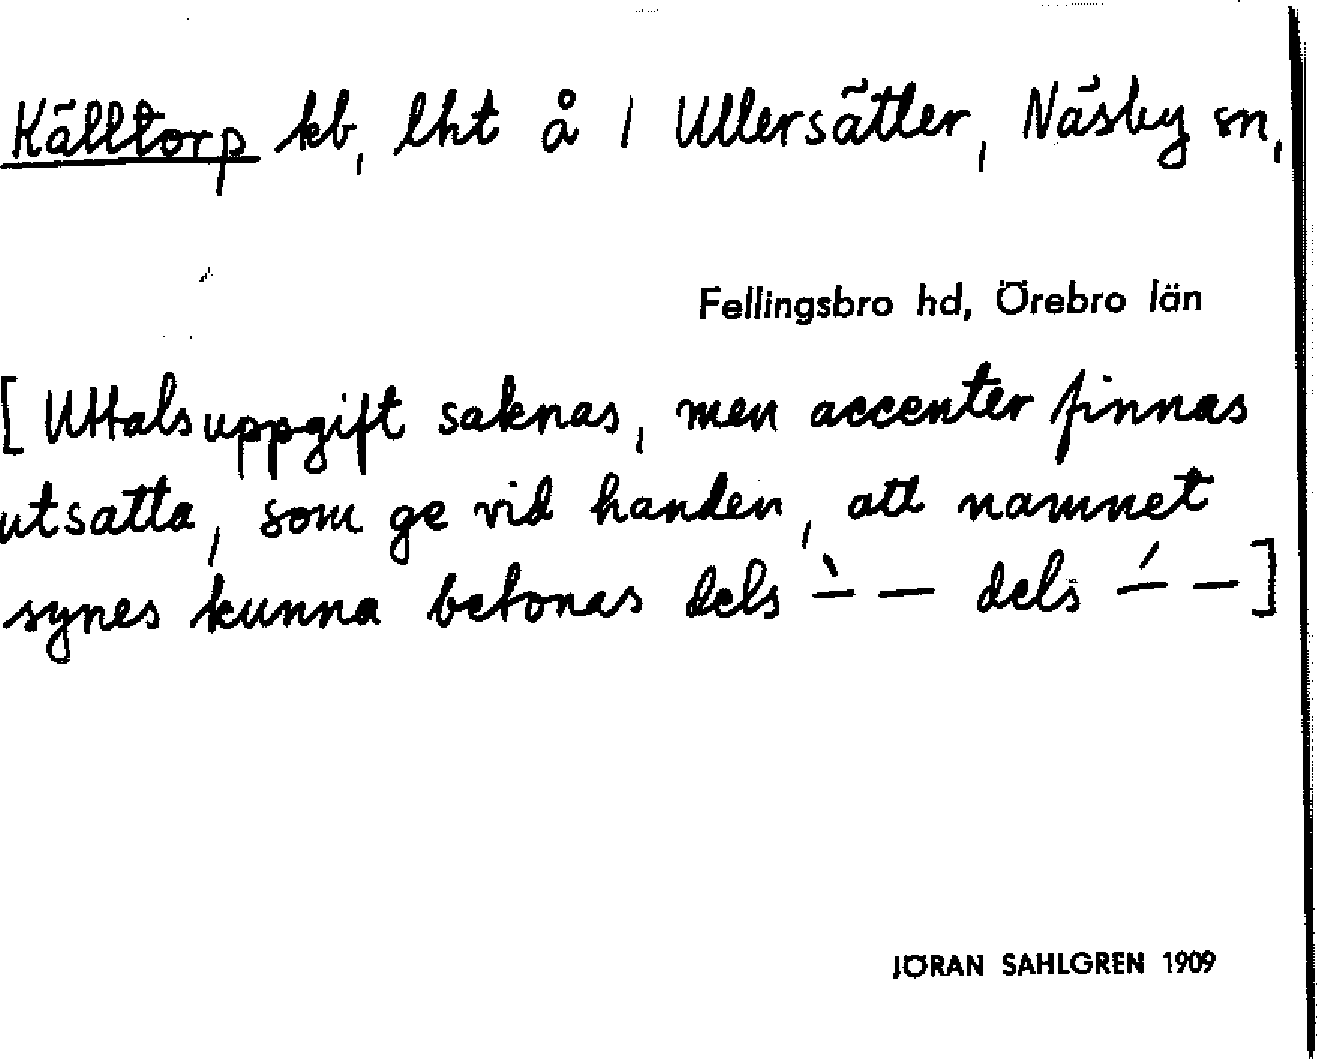 Källtorp kb, lht å 1 Ullersätter, Näsby sn,
Fellingsbro hd, Örebro län
[Uttalsuppgift saknas, men accenter finnas
utsatta, som ge vid handen, att namnet
synes kunna betonas dels ̀— — dels ́— —]
JÖRAN SAHLGREN 1909